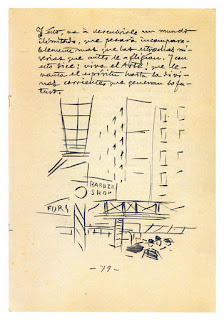 Y esto, va á descubrirle un mundo
ilimitado, que pesará incompara-
blemente mas que las estrechas mi-
serias que antes le afligian. Y con
esto dice: viva el Arte! que le-
vanta el espíritu hasta la divi-
nas corrientes que generan
BARBER
SHOP
FURS
- 79 -